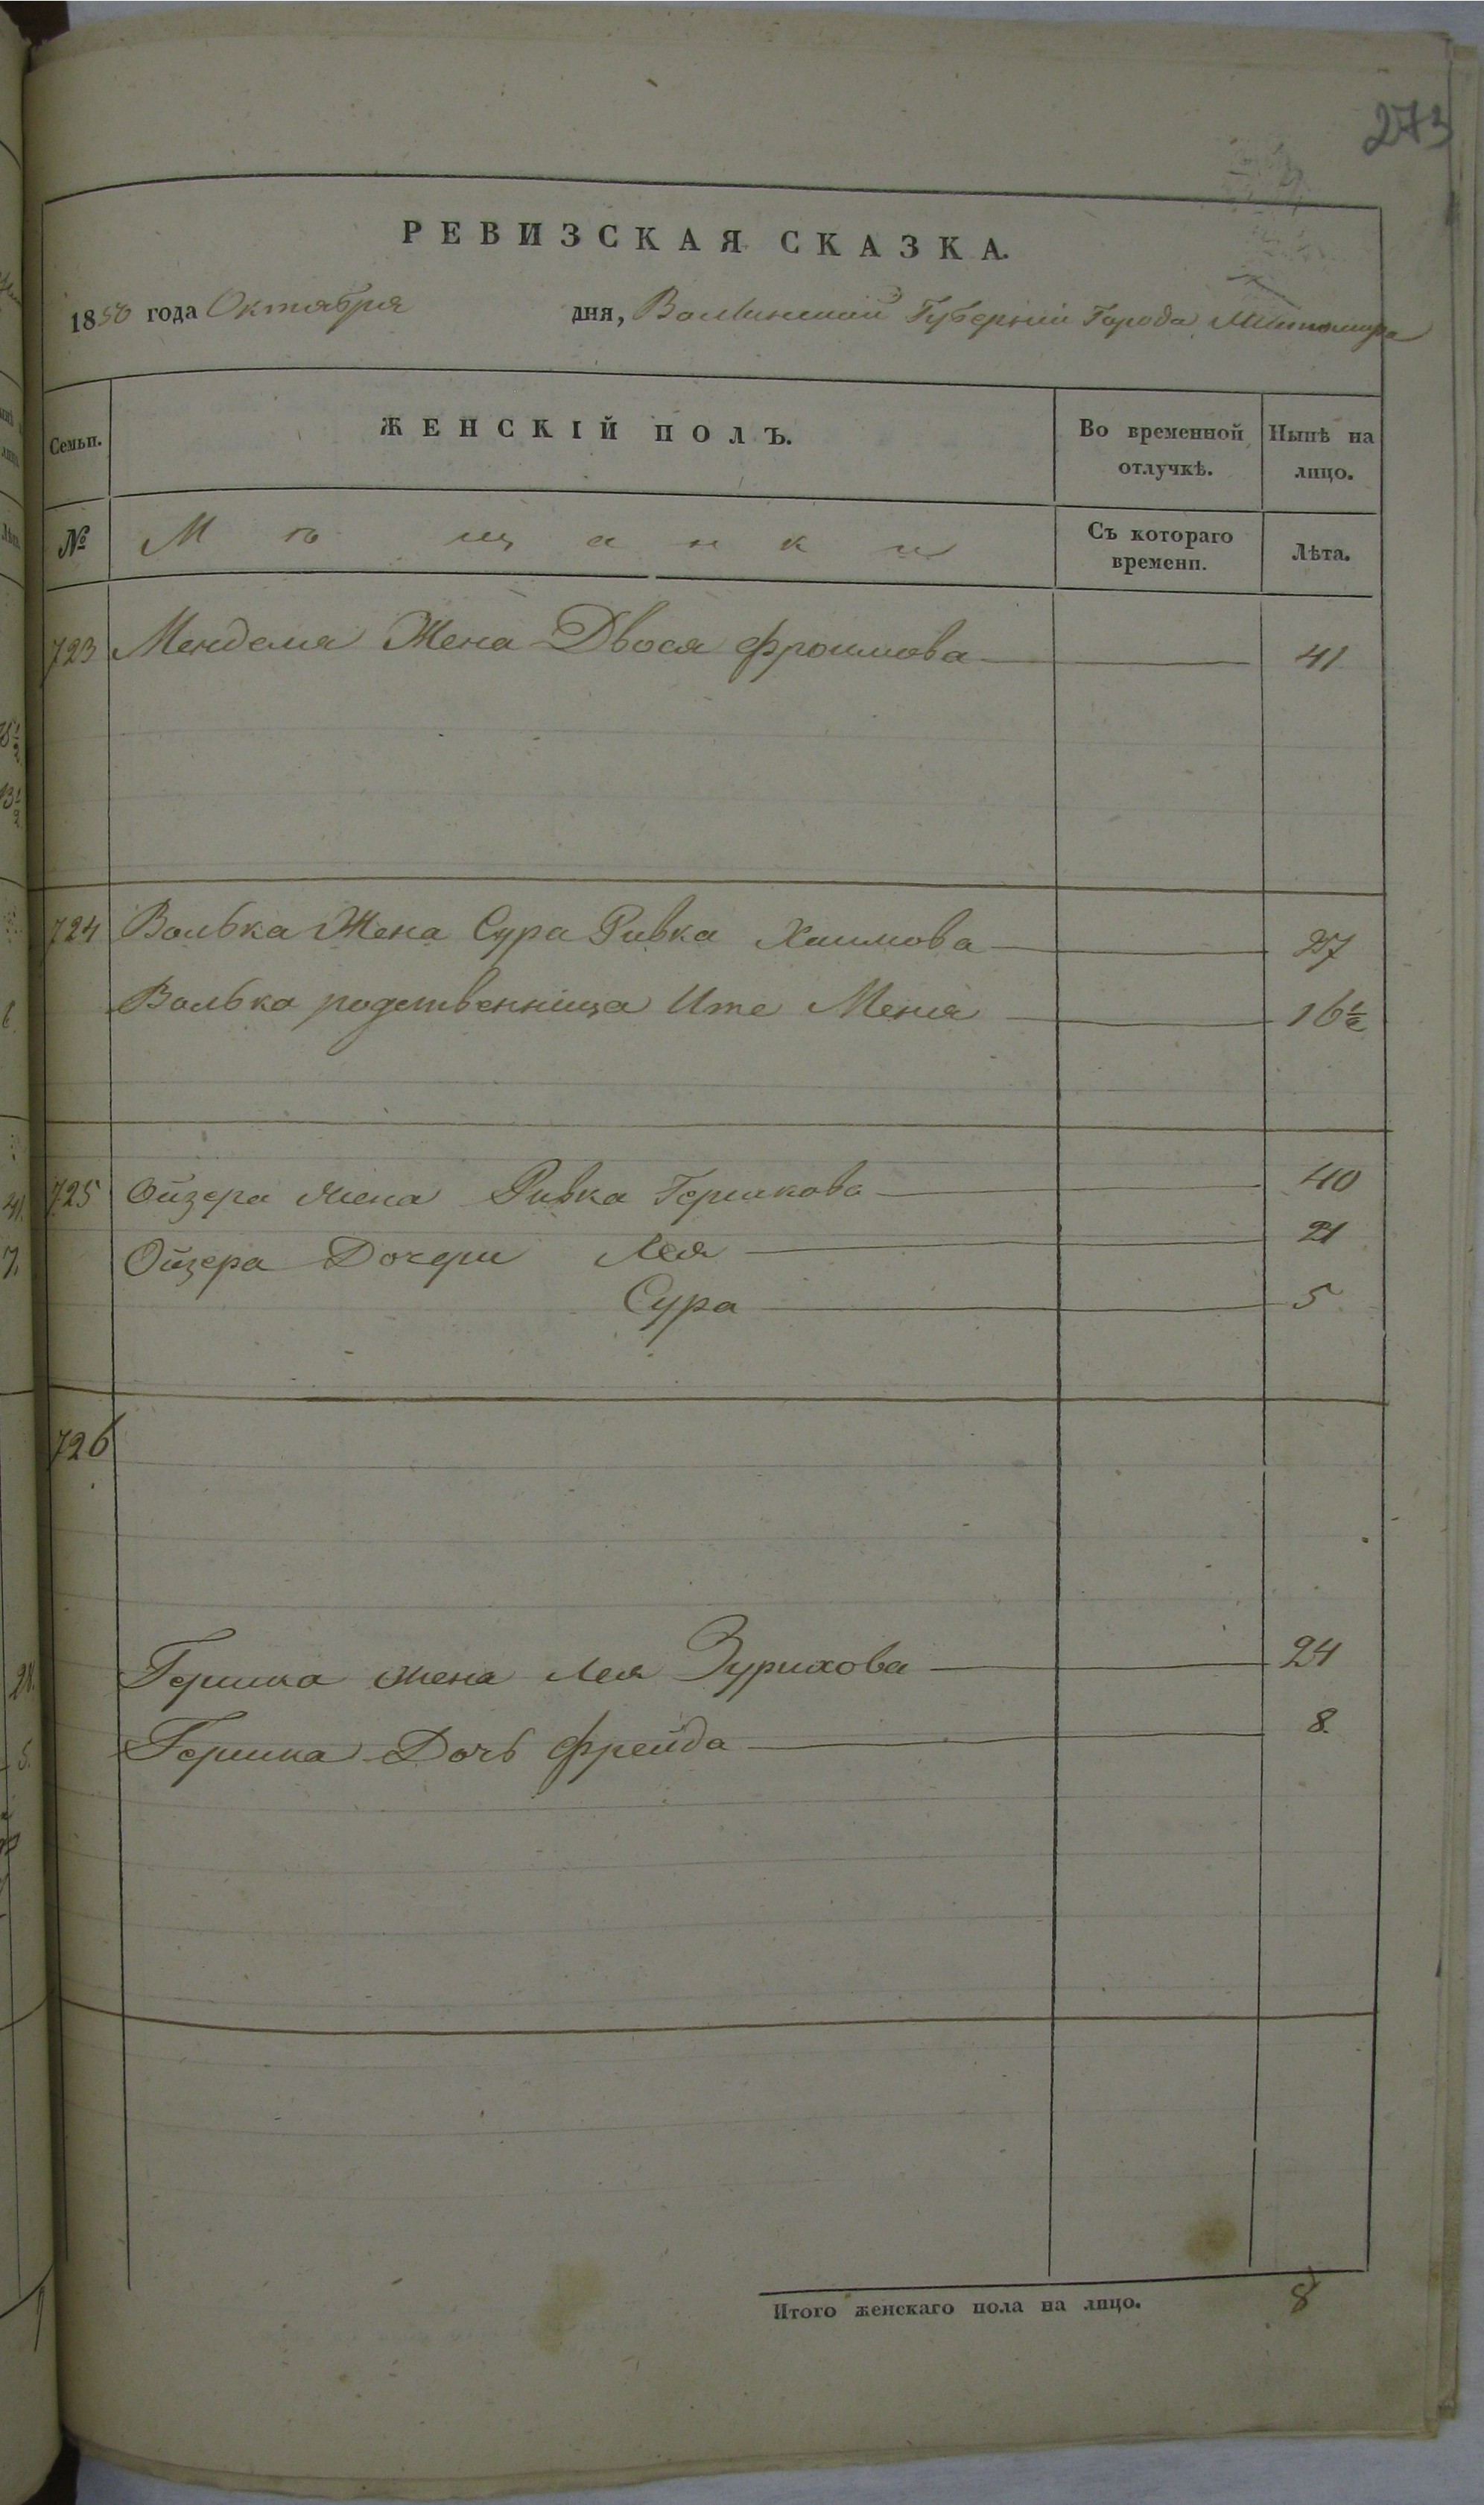 273
РЕВИЗСКАЯ СКАЗКА.
1850 года Октября дня, Волынской Губерніи Города Житомира
Семьи. ЖЕНСКІЙ ПОЛЪ. Во временной отлучкѣ. Нынѣ на лицо.
№ Мѣщанки Съ котораго времени. Лѣта.
723 Менделя Жена Двося Фроимова 41
724 Волька Жена Сура Ривка Хаимова 27
Волька родственница Ите Меня 16 1/2
725 Ойзера жена Ривка Гершкова 40
Ойзера Дочери Лея 21
Сура 5
726
Гершка жена Лея Зурихова 24
Гершка Дочь Фрейда 8.
Итого женскаго пола на лицо. 8